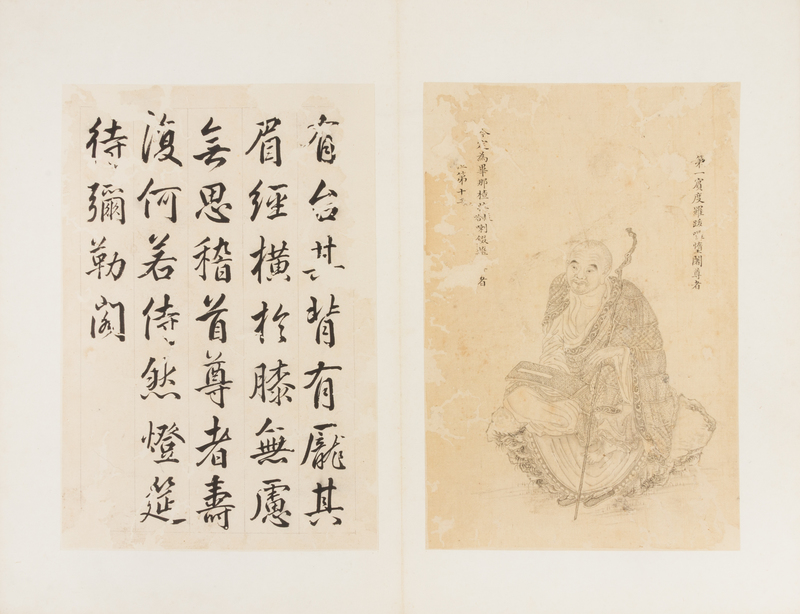 第一賓度羅跋墮闍尊者
今定為畢那植哩鍐者
第十三
有台其背有龐其
眉經橫於膝無慮
無思稽首尊者壽
復何若侍然燈筵
待彌勒閣